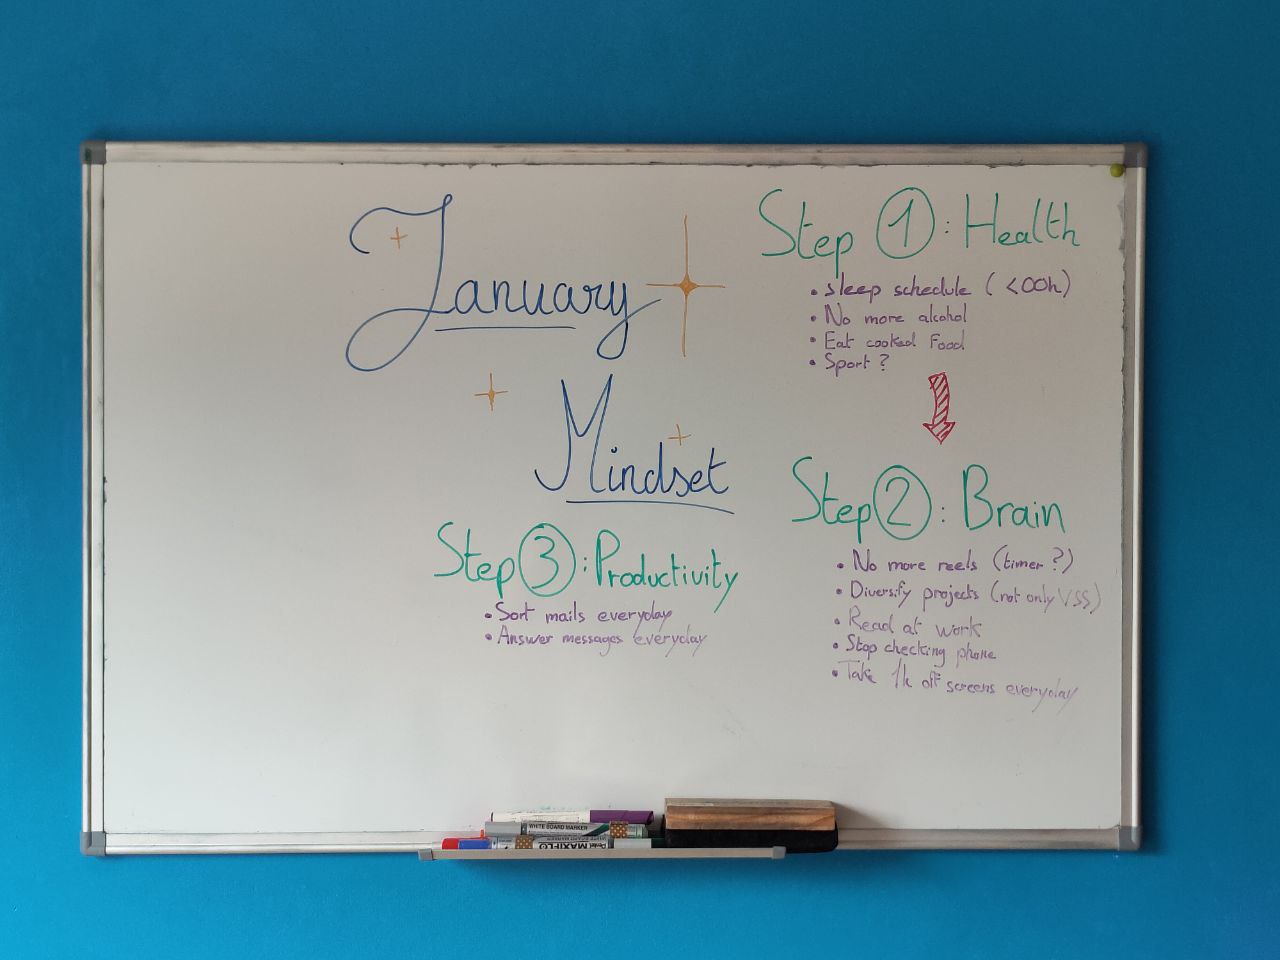 January
Mindset
Step 1: Health
• Sleep schedule (<00h)
• No more alcohol
• Eat cooked Food
• Sport ?
Step 2: Brain
• No more reels (timer ?)
• Diversify projects (not only VSS)
• Read at work
• Stop checking phone
• Take 1h off screens everyday
Step 3: Productivity
• Sort mails everyday
• Answer messages everyday
WHITE BOARD MARKER
Pentel MAXIFLO